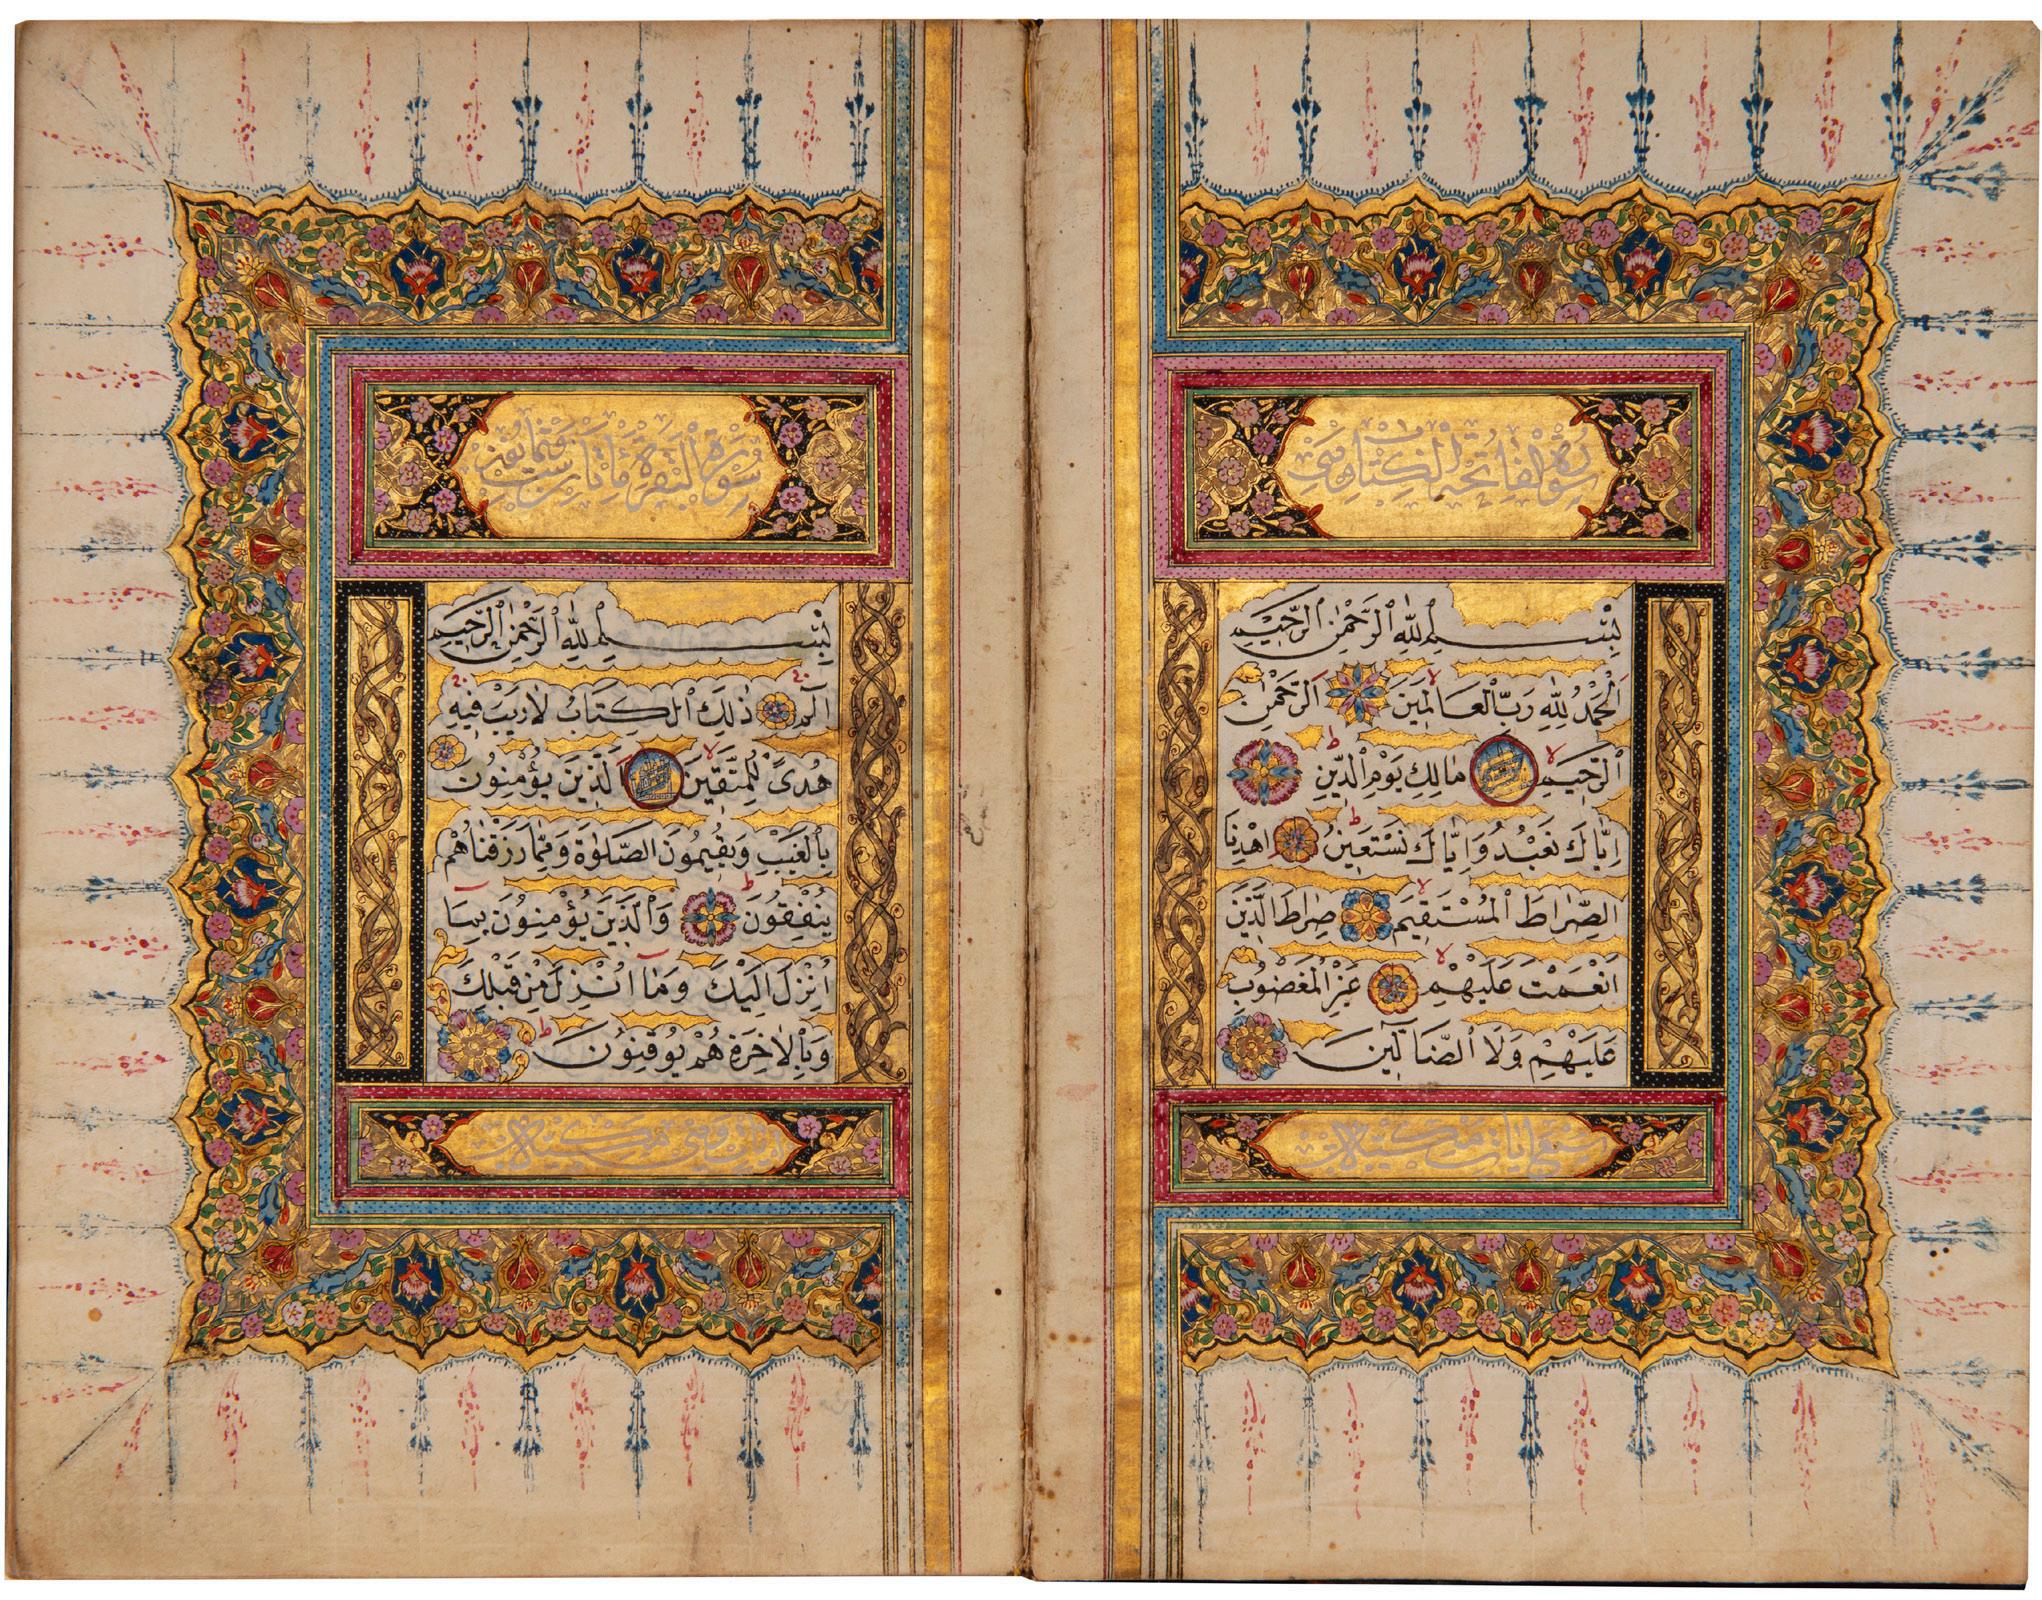 سورة فاتحة الكتاب وهي
بِسْمِ اللّٰهِ الرَّحْمٰنِ الرَّحِيمِ
اَلْحَمْدُ لِلّٰهِ رَبِّ الْعَالَمِينَ اَلرَّحْمٰنِ
الرَّحِيمِ مَالِكِ يَوْمِ الدِّينِ
اِيَّاكَ نَعْبُدُ وَاِيَّاكَ نَسْتَعِينُ اِهْدِنَا
الصِّرَاطَ الْمُسْتَقِيمَ صِرَاطَ الَّذِينَ
اَنْعَمْتَ عَلَيْهِمْ غَيْرِ الْمَغْضُوبِ
عَلَيْهِمْ وَلَا الضَّالِّينَ
سبع ايات مكية
سُورَةُ الْبَقَرَةِ مائتان وست وثمانون
بِسْمِ اللّٰهِ الرَّحْمٰنِ الرَّحِيمِ
الٓمٓ ذٰلِكَ الْكِتَابُ لَا رَيْبَ فِيهِ
هُدًى لِلْمُتَّقِينَ اَلَّذِينَ يُؤْمِنُونَ
بِالْغَيْبِ وَيُقِيمُونَ الصَّلٰوةَ وَمِمَّا رَزَقْنَاهُمْ
يُنْفِقُونَ وَالَّذِينَ يُؤْمِنُونَ بِمَا
اُنْزِلَ اِلَيْكَ وَمَا اُنْزِلَ مِنْ قَبْلِكَ
وَبِالْاٰخِرَةِ هُمْ يُوقِنُونَ
ايات وهي